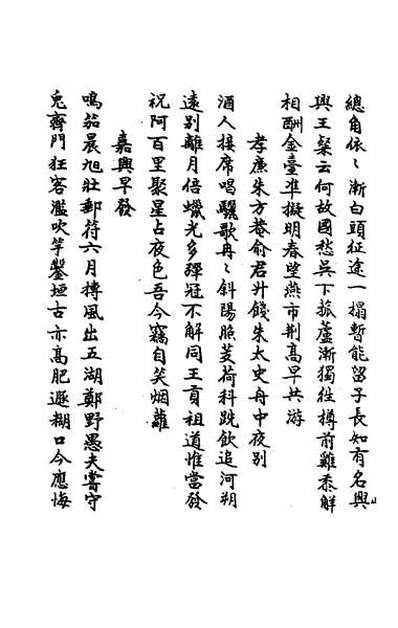 總角依〻漸白頭征途一攝暫能留子長知有名與
興王粲云何故國愁吳下菰蘆漸獨往樽前雞黍鮮
相酬金臺準擬明春望燕市荆高早共游
孝廉朱方菴俞君升餞朱太史舟中夜別
酒人接席唱驪歌冉〻斜陽照芰荷科跣飲追河朔
遠別離月倍蠟光多彈冠不解同王貢祖道惟當發
祝阿百里聚星占夜色吾今竊自笑烟蘿
嘉興早發
鳴笳晨旭壯郵符六月摶風出五湖鄭野愚夫嘗守
兔齊門狂客濫吹竽鑿垣古亦高肥遯糊口今應悔